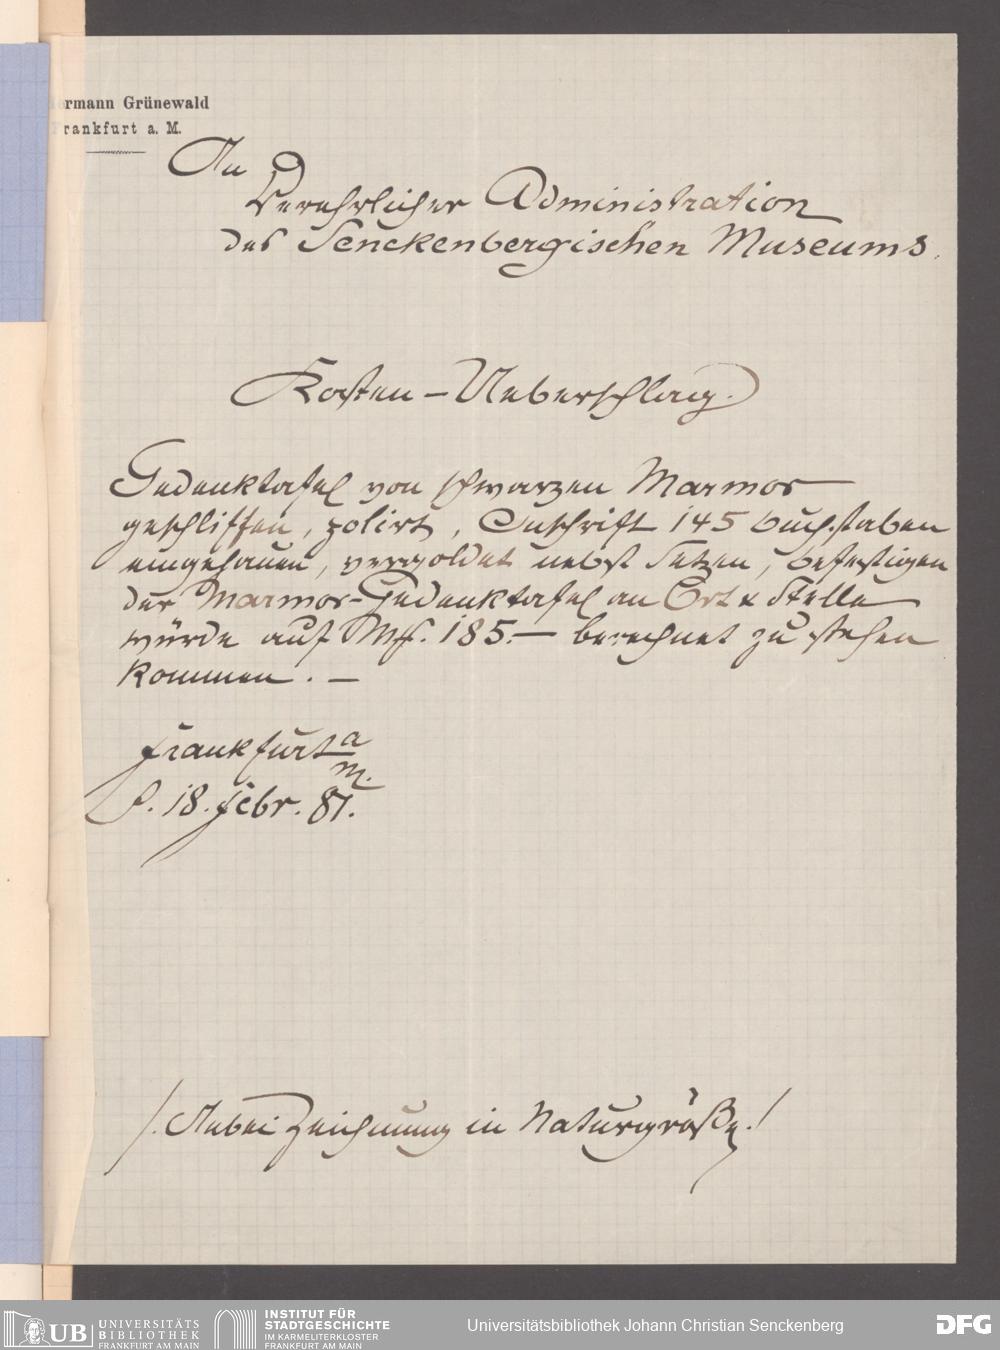 Hermann Grünewald
Frankfurt a. M.
An
Verehrlicher Administration
des Senckenbergischen Museums.
Kosten-Ueberschlag.
Gedenktafel von schwarzen Marmor
geschliffen, polirt, Inschrift 145 Buchstaben
eingehauen, vergoldet nebst Setzen, befestigen
der Marmor-Gedenktafel an Ort & Stelle
würde auf Mk. 185.— berechnet zu stehen
kommen. —
Frankfurt a
M.
d. 18. Febr. 81.
/. Anbei Zeichnung in Naturgröße. /
UB UNIVERSITÄTS
BIBLIOTHEK
FRANKFURT AM MAIN
INSTITUT FÜR
STADTGESCHICHTE
IM KARMELITERKLOSTER
FRANKFURT AM MAIN
Universitätsbibliothek Johann Christian Senckenberg
DFG